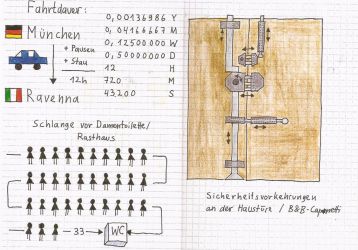 Fahrtdauer:
München
+ Pausen
+ Stau
12h
Ravenna
0,00136986 Y
0,04166667 M
0,12500000 W
0,50000000 D
12 H
720 M
43,200 S
Schlange vor Damentoilette/
Rasthaus
33
WC
Sicherheitsvorkehrungen
an der Haustüre / B&B-